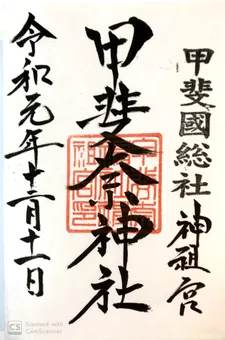 甲斐國総社神祖宮
甲斐奈神社
令和元年十二月十一日
CS Scanned with
CamScanner